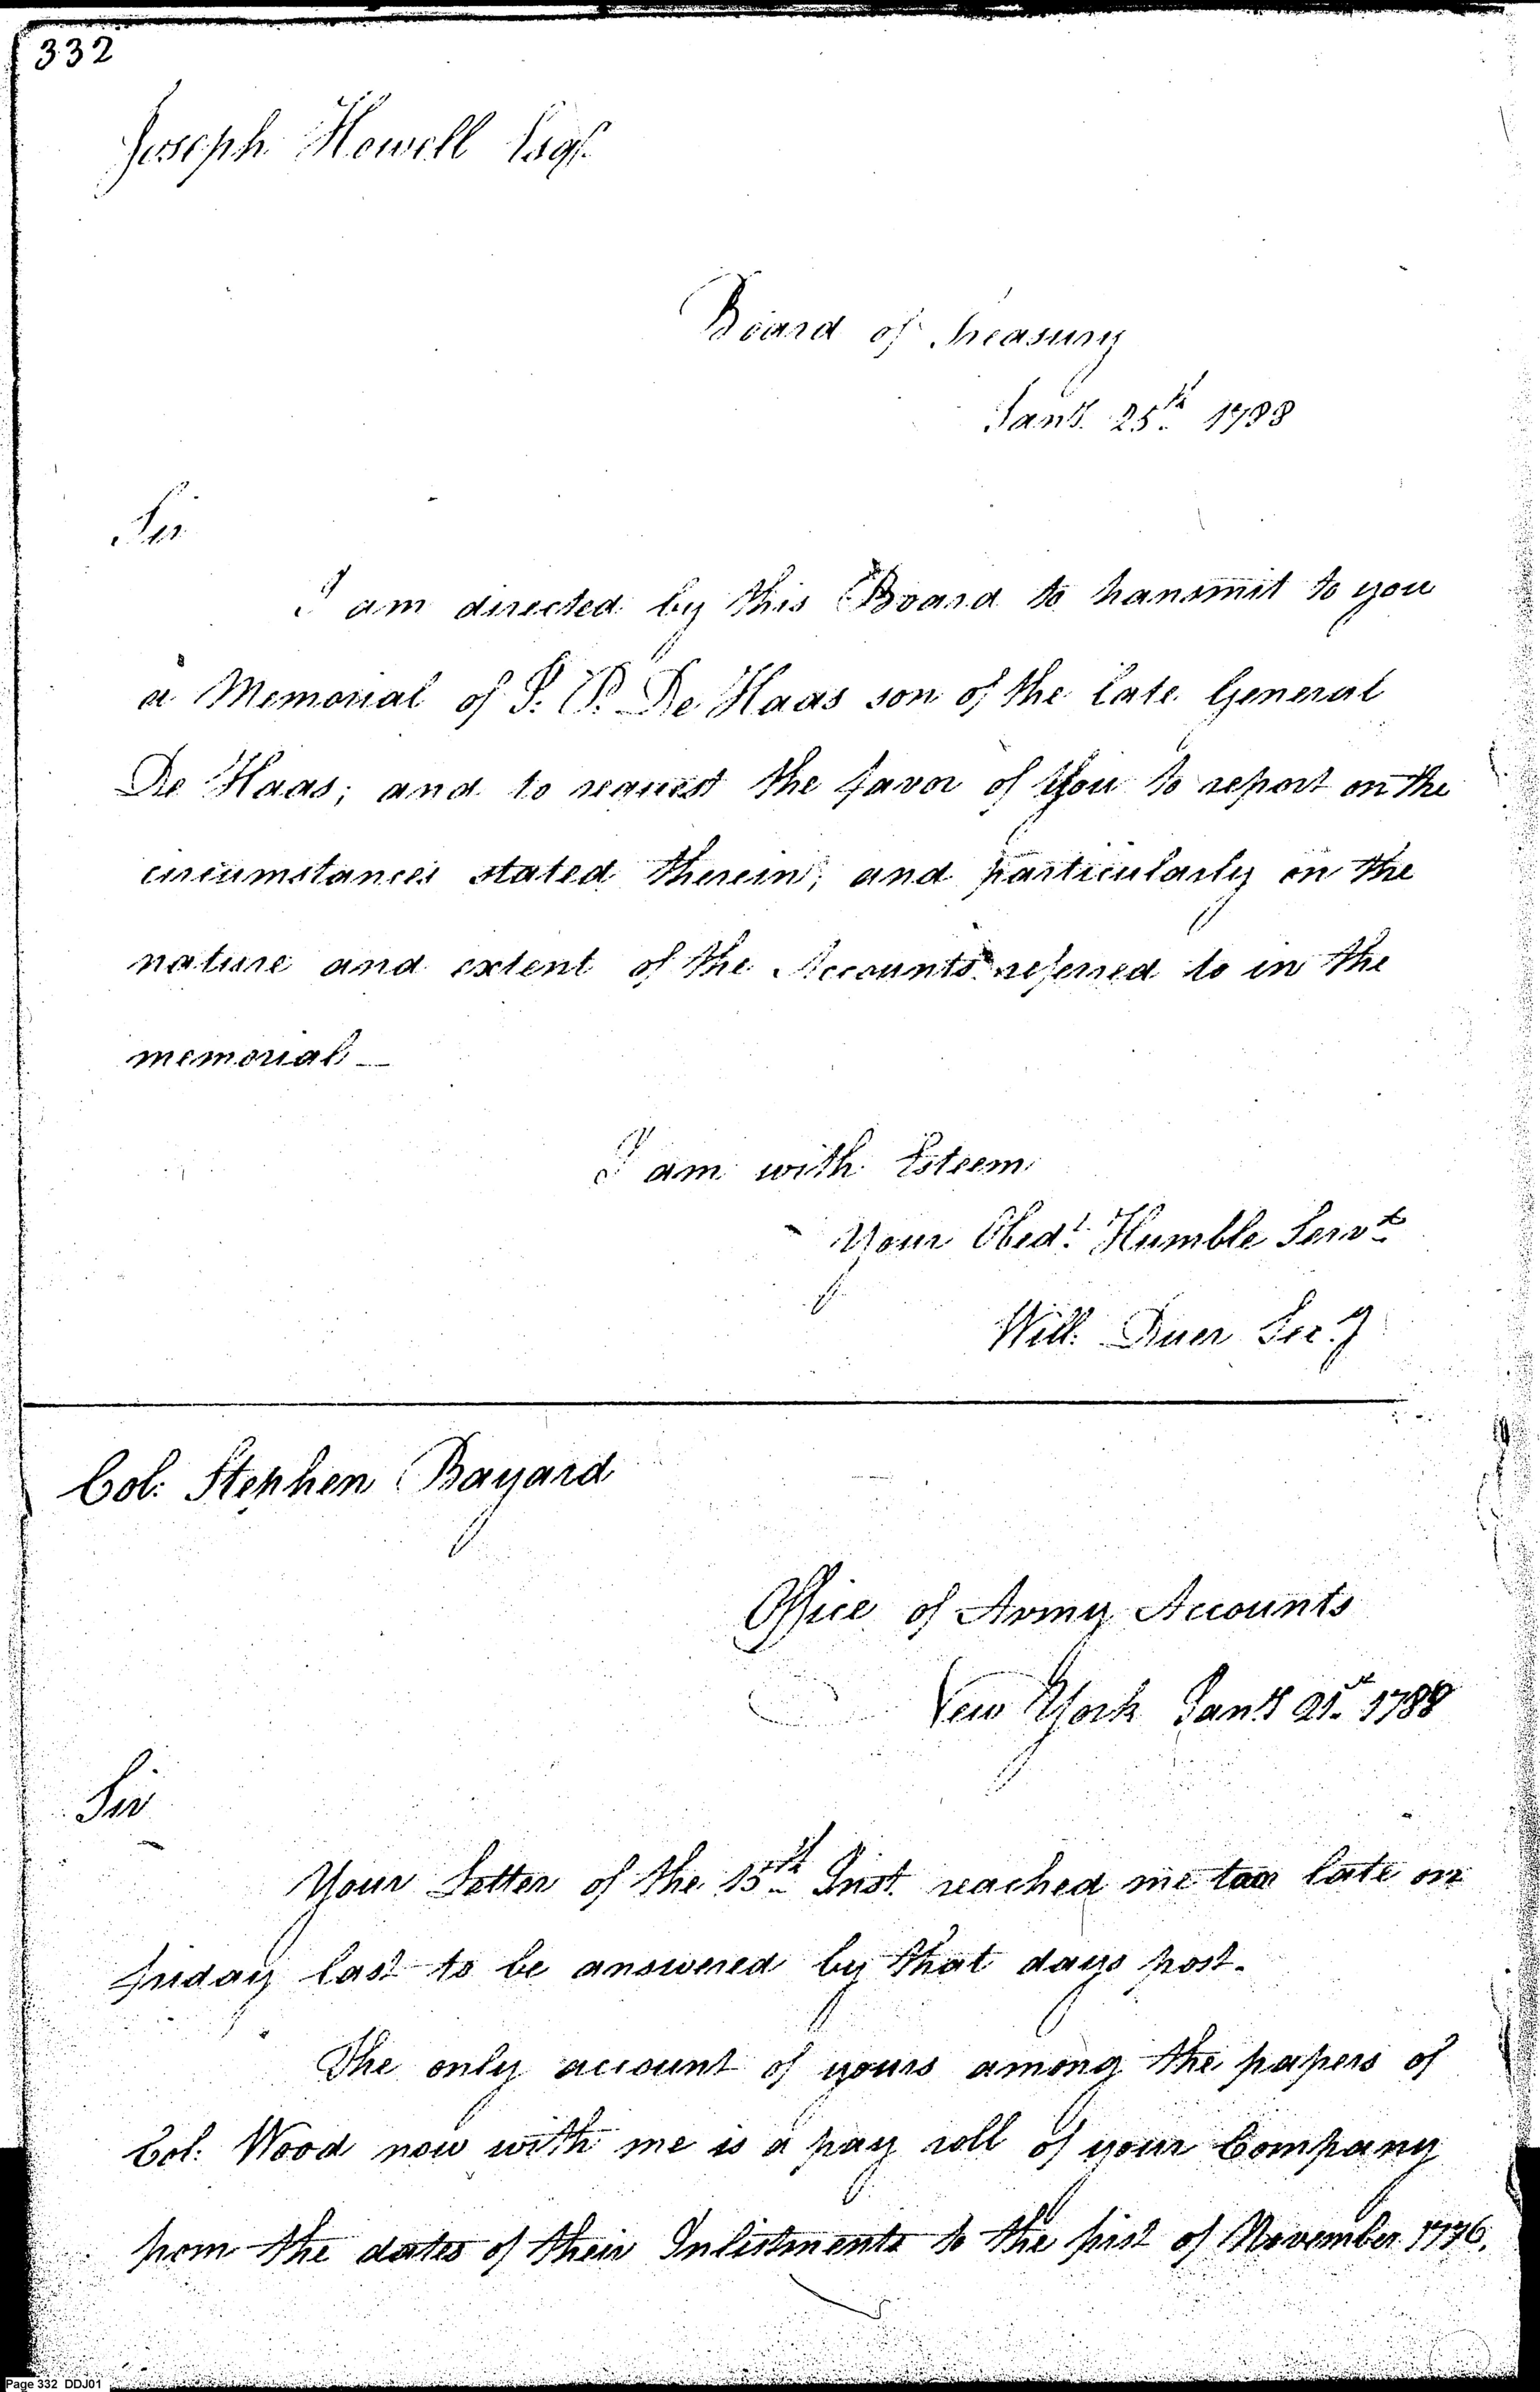 332
Joseph Howell Esqr.
Board of Treasury
Jany. 25th 1788
Sir
I am directed by this Board to transmit to you
a Memorial of J. P. De Haas son of the late General
De Haas; and to request the favor of You to report on the
circumstances stated therein; and particularly on the
nature and extent of the Accounts referred to in the
memorial —
I am with Esteem
Your Obedt. Humble Servt.
Will. Duer Secy
Col: Stephen Bayard
Office of Army Accounts
New York Jany 21st 1788
Sir
Your Letter of the 15th Inst. reached me too late on
friday last to be answered by that days post.
The only account of yours among the papers of
Col: Wood now with me is a pay roll of your Company
from the dates of their Inlistments to the first of November 1776.
Page 332 DDJ01